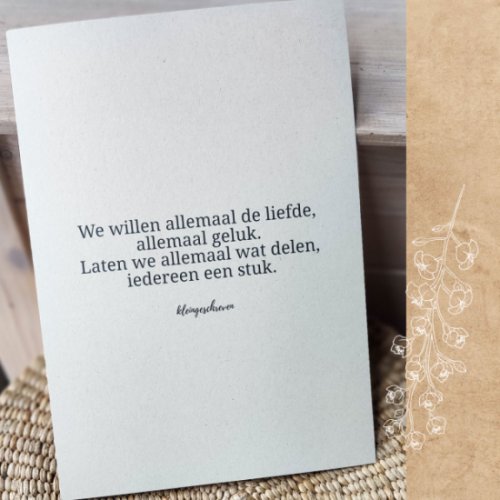 We willen allemaal de liefde,
allemaal geluk.
Laten we allemaal wat delen,
iedereen een stuk.
kleingeschreven